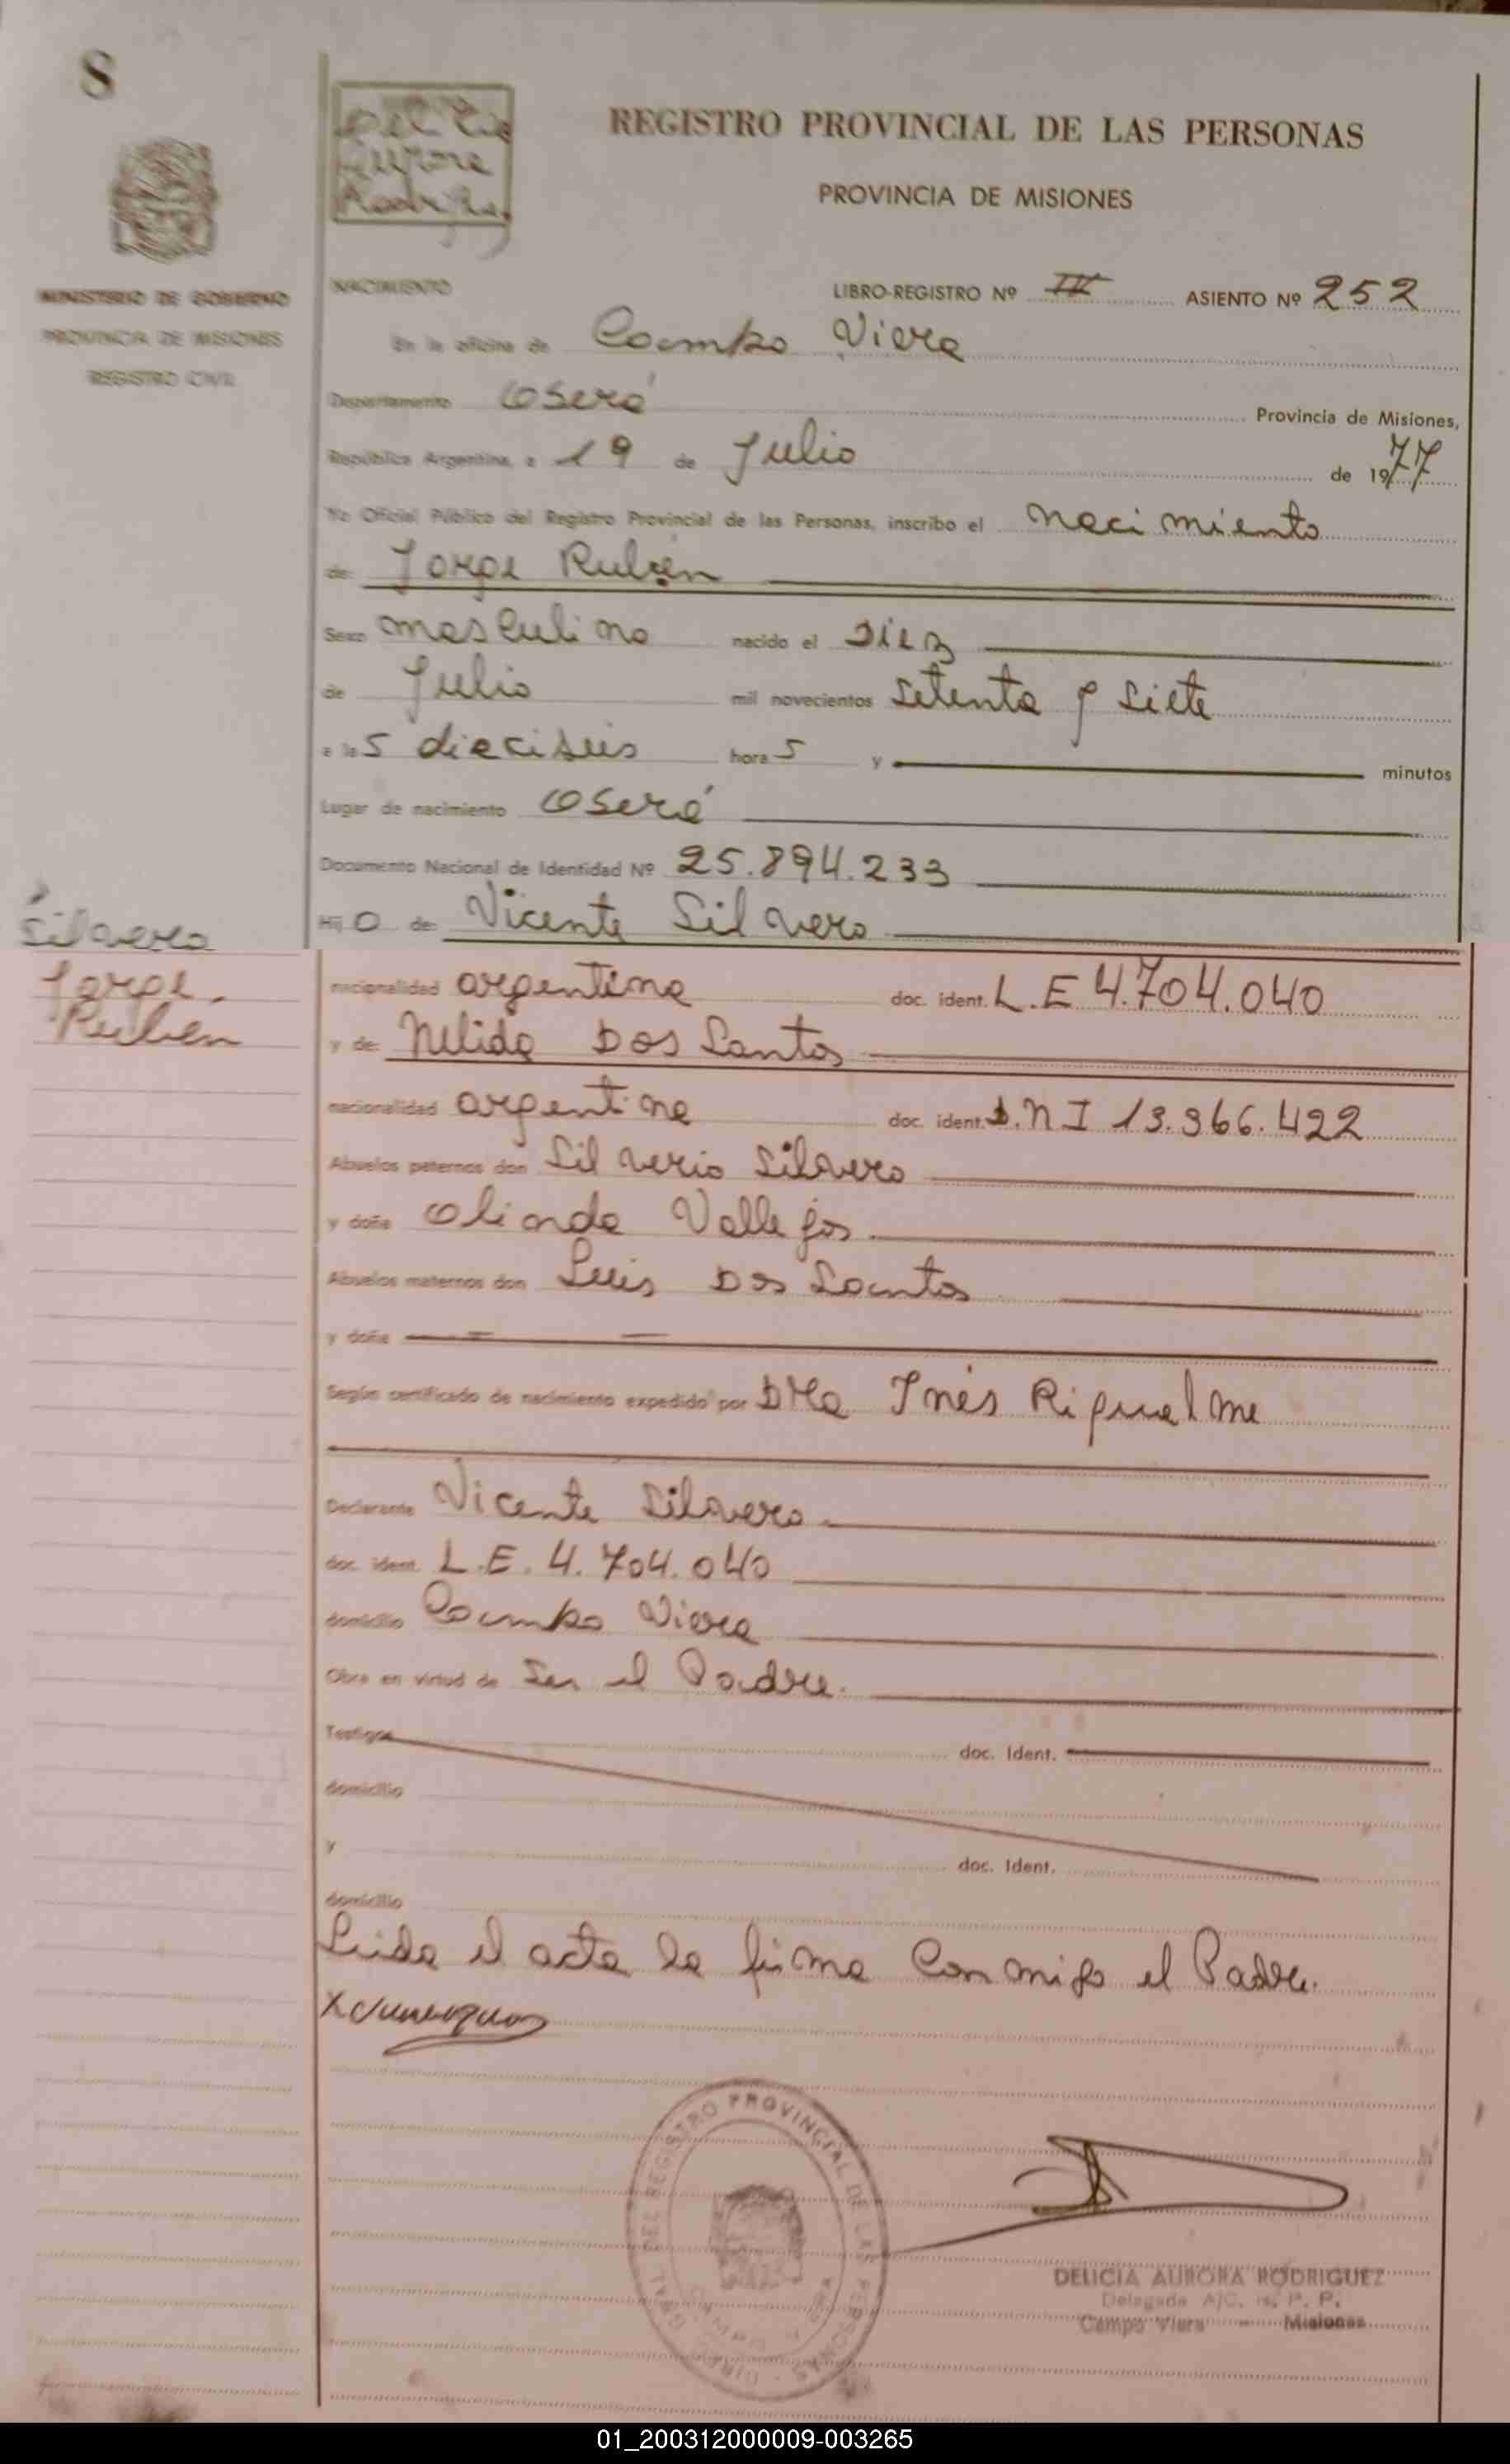 8
Delicia
Aurora
Rodriguez
REGISTRO PROVINCIAL DE LAS PERSONAS
PROVINCIA DE MISIONES
MINISTERIO DE GOBIERNO
PROVINCIA DE MISIONES
REGISTRO CIVIL
NACIMIENTO LIBRO-REGISTRO Nº IV ASIENTO Nº 252
En la oficina de Campo Viera
Departamento Oberá Provincia de Misiones,
República Argentina, a 19 de Julio de 1977
Yo Oficial Público del Registro Provincial de las Personas, inscribo el nacimiento
de: Jorge Rubén
Sexo masculino nacido el Diez
de Julio mil novecientos setenta y siete
a las dieciseis horas y minutos
Lugar de nacimiento Oberá
Documento Nacional de Identidad Nº 25.894.233
Hijo de: Vicente Silvero
Silvero
Jorge
Ruben
nacionalidad argentina doc. ident. L.E 4.704.040
y de: Nelida Dos Santos
nacionalidad argentina doc. ident. D.N I 13.366.422
Abuelos paternos don Silverio Silvero
y doña Olinda Vallejos
Abuelos maternos don Luis Dos Santos
y doña
Según certificado de nacimiento expedido por Dra Inés Riquelme
Declarante Vicente Silvero
doc. ident. L.E. 4.704.040
domicilio Campo Viera
Obra en virtud de Ser el Padre.
Testigos doc. Ident.
domicilio
y doc. Ident.
domicilio
Leida el acta la firma conmigo el Padre.
DIREC. GRAL. DEL REGISTRO PROVINCIAL DE LAS PERSONAS
DELICIA AURORA RODRIGUEZ
Delegada A/C. R. P. P.
Campo Viera - Misiones
01_200312000009-003265